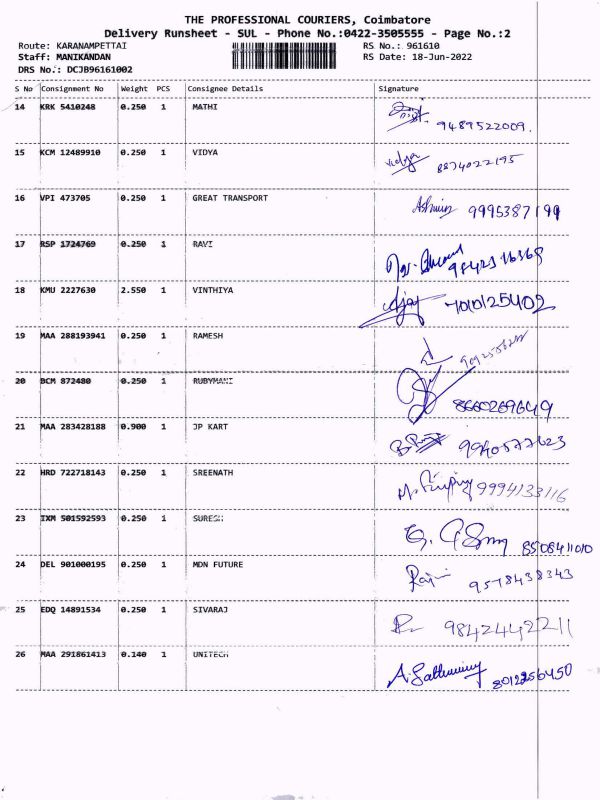 THE PROFESSIONAL COURIERS, Coimbatore
Delivery Runsheet - SUL - Phone No.:0422-3505555 - Page No.:2
Route: KARANAMPETTAI RS No.: 961610
Staff: MANIKANDAN RS Date: 18-Jun-2022
DRS No.: DCJB96161002
S No Consignment No Weight PCS Consignee Details Signature
14 KRK 5410248 0.250 1 MATHI
9489522009.
15 KCM 12489910 0.250 1 VIDYA
Vidya 8874022195
16 VPI 473705 0.250 1 GREAT TRANSPORT
Ashwin 9995387199
17 RSP 1724769 0.250 1 RAVI
9842316368
18 KMU 2227630 2.550 1 VINTHIYA
Ajay 7010125402
19 MAA 288193941 0.250 1 RAMESH
20 BCM 872480 0.250 1 RUBYMANI
8660269649
21 MAA 283428188 0.900 1 JP KART
9940577623
22 HRD 722718143 0.250 1 SREENATH
9994133116
23 IXM 501592593 0.250 1 SURESH
8508411010
24 DEL 901000195 0.250 1 MDN FUTURE
9578438343
25 EDQ 14891534 0.250 1 SIVARAJ
9842442211
26 MAA 291861413 0.140 1 UNITECH
8012256450